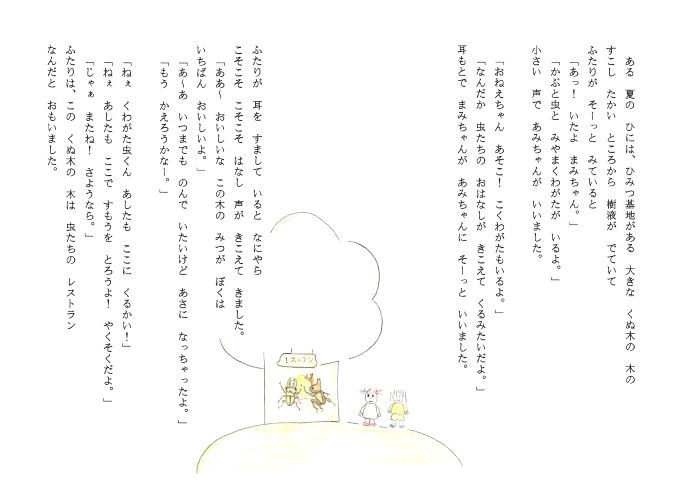 ある　夏の　ひには、ひみつ基地がある　大きな　くぬ木の　木の
すこし　たかい　ところから　樹液が　でていて
ふたりが　そーっと　みていると
「あっ！　いたよ　まみちゃん。」
「かぶと虫と　みやまくわがたが　いるよ。」
小さい　声で　あみちゃんが　いいました。
「おねえちゃん　あそこ！　こくわがたもいるよ。」
「なんだか　虫たちの　おはなしが　きこえて　くるみたいだよ。」
耳もとで　まみちゃんが　あみちゃんに　そーっと　いいました。
ふたりが　耳を　すまして　いると　なにやら
こそこそ　こそこそ　はなし　声が　きこえて　きました。
「ああ～　おいしいな　この木の　みつが　ぼくは
いちばん　おいしいよ。」
「あ～あ　いつまでも　のんで　いたいけど　あさに　なっちゃったよ。」
「もう　かえろうかなー。」
「ねぇ　くわがた虫くん　あしたも　ここに　くるかい！」
「ねぇ　あしたも　ここで　すもうを　とろうよ！　やくそくだよ。」
「じゃぁ　またね！　さようなら。」
ふたりは、この　くぬ木の　木は　虫たちの　レストラン
なんだと　おもいました。
レストラン